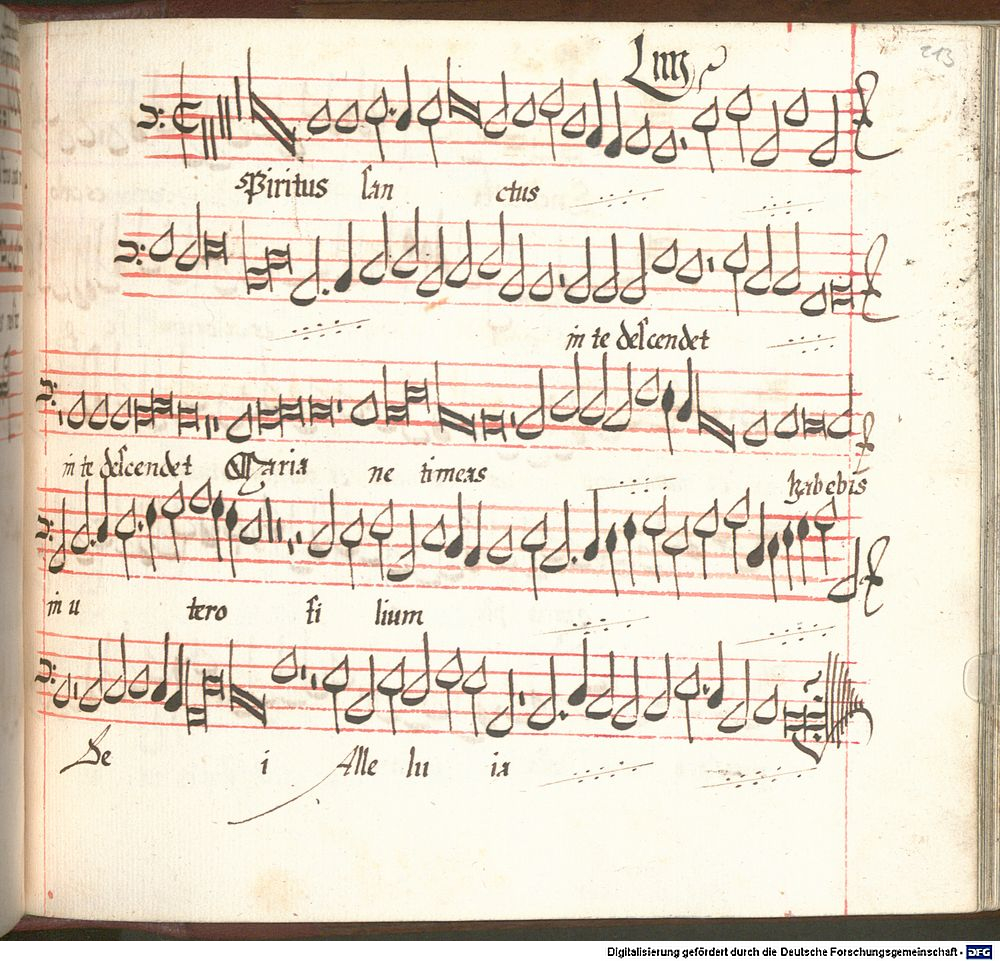 Liiij
213
Spiritus san ctus
in te descendet
in te descendet Maria ne timeas habebis
in u tero fi lium
De i Alle lu ia
Digitalisierung gefördert durch die Deutsche Forschungsgemeinschaft - DFG